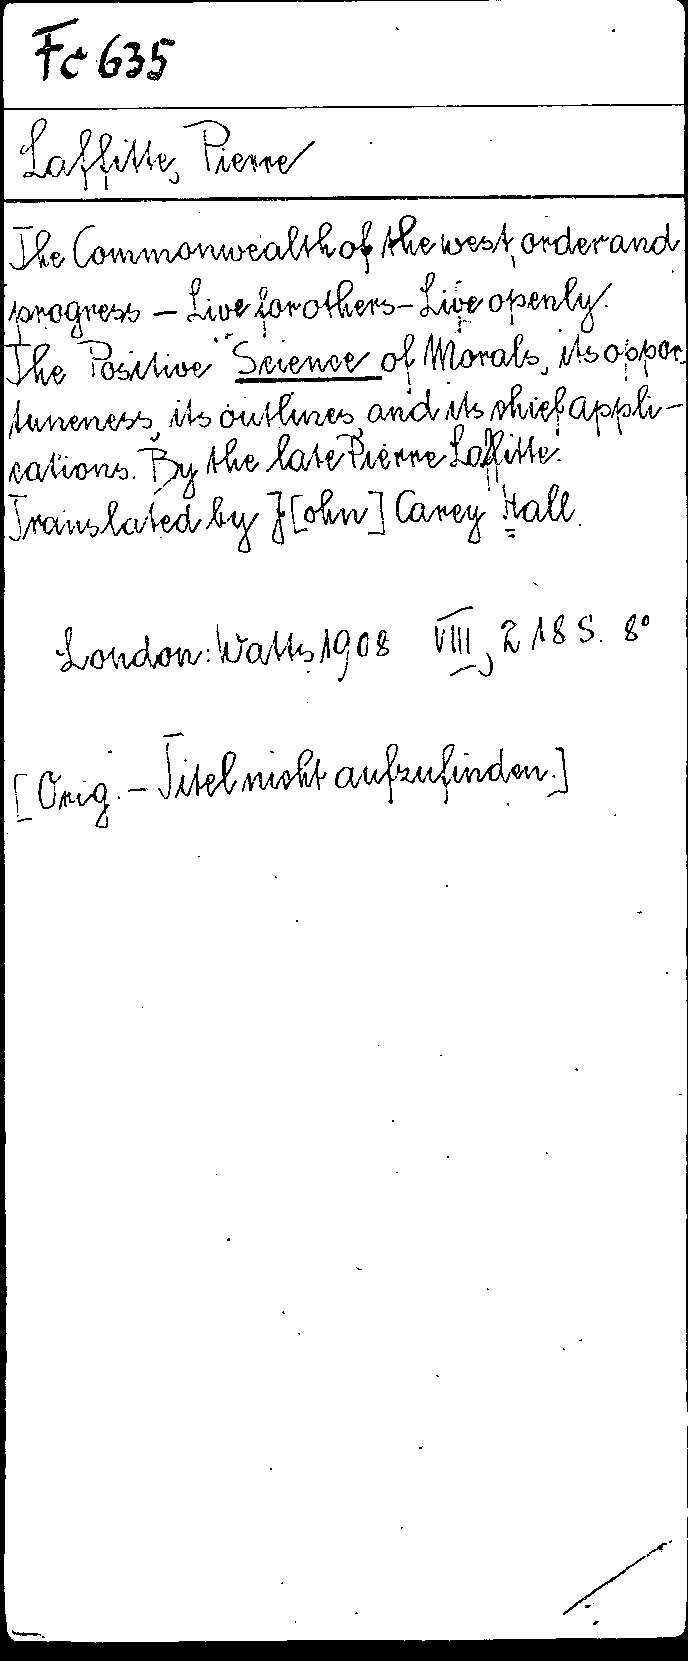 Fc 635
Laffitte, Pierre
The Commonwealth of the west, order and
progress – Live for others – Live openly.
The Positive Science of Morals, its oppor-
tuneness, its outlines, and its chief appli-
cations. By the late Pierre Laffitte.
Translated by J[ohn] Carey Hall.
London: Watts 1908 VIII, 218 S. 8°
[Orig. – Titel nicht aufzufinden.]